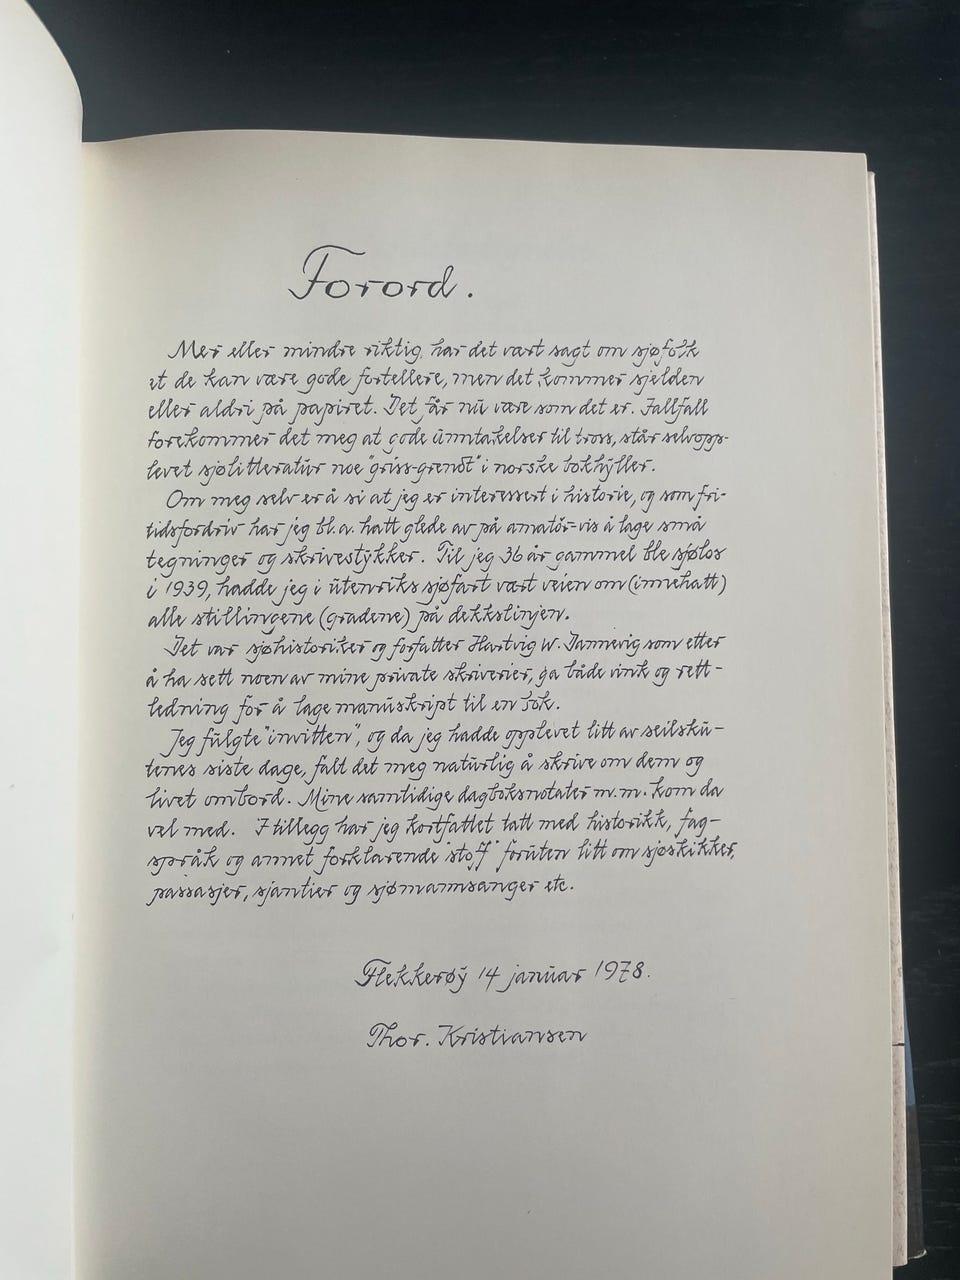 Forord.
Mer eller mindre riktig, har det vært sagt om sjøfolk
at de kan være gode fortellere, men det kommer sjelden
eller aldri på papiret. Det får nu være som det er. Iallfall
forekommer det meg at gode unntakelser til tross, står selvopp-
levet sjølitteratur noe "griss-grendt" i norske bokhyller.
Om meg selv er å si at jeg er interessert i historie, og som fri-
tidsfordriv har jeg bl.a. hatt glede av på amatør-vis å lage små
tegninger og skrivestykker. Til jeg 36 år gammel ble sjøløs
i 1939, hadde jeg i utenriks sjøfart vært veien om (innehatt)
alle stillingene (gradene) på dekkslinjen.
Det var sjøhistoriker og forfatter Hartvig W. Dannevig som etter
å ha sett noen av mine private skriverier, ga både vink og rett-
ledning for å lage manuskript til en bok.
Jeg fulgte "invitten", og da jeg hadde opplevet litt av seilsku-
tenes siste dage, falt det meg naturlig å skrive om dem og
livet ombord. Mine samtidige dagboksnotater m.m. kom da
vel med. I tillegg har jeg kortfattet tatt med historikk, fag-
språk og annet forklarende "stoff" foruten litt om sjøskikker,
passasjer, sjantier og sjømannsanger etc.
Flekkerøy 14 januar 1978.
Thor. Kristiansen